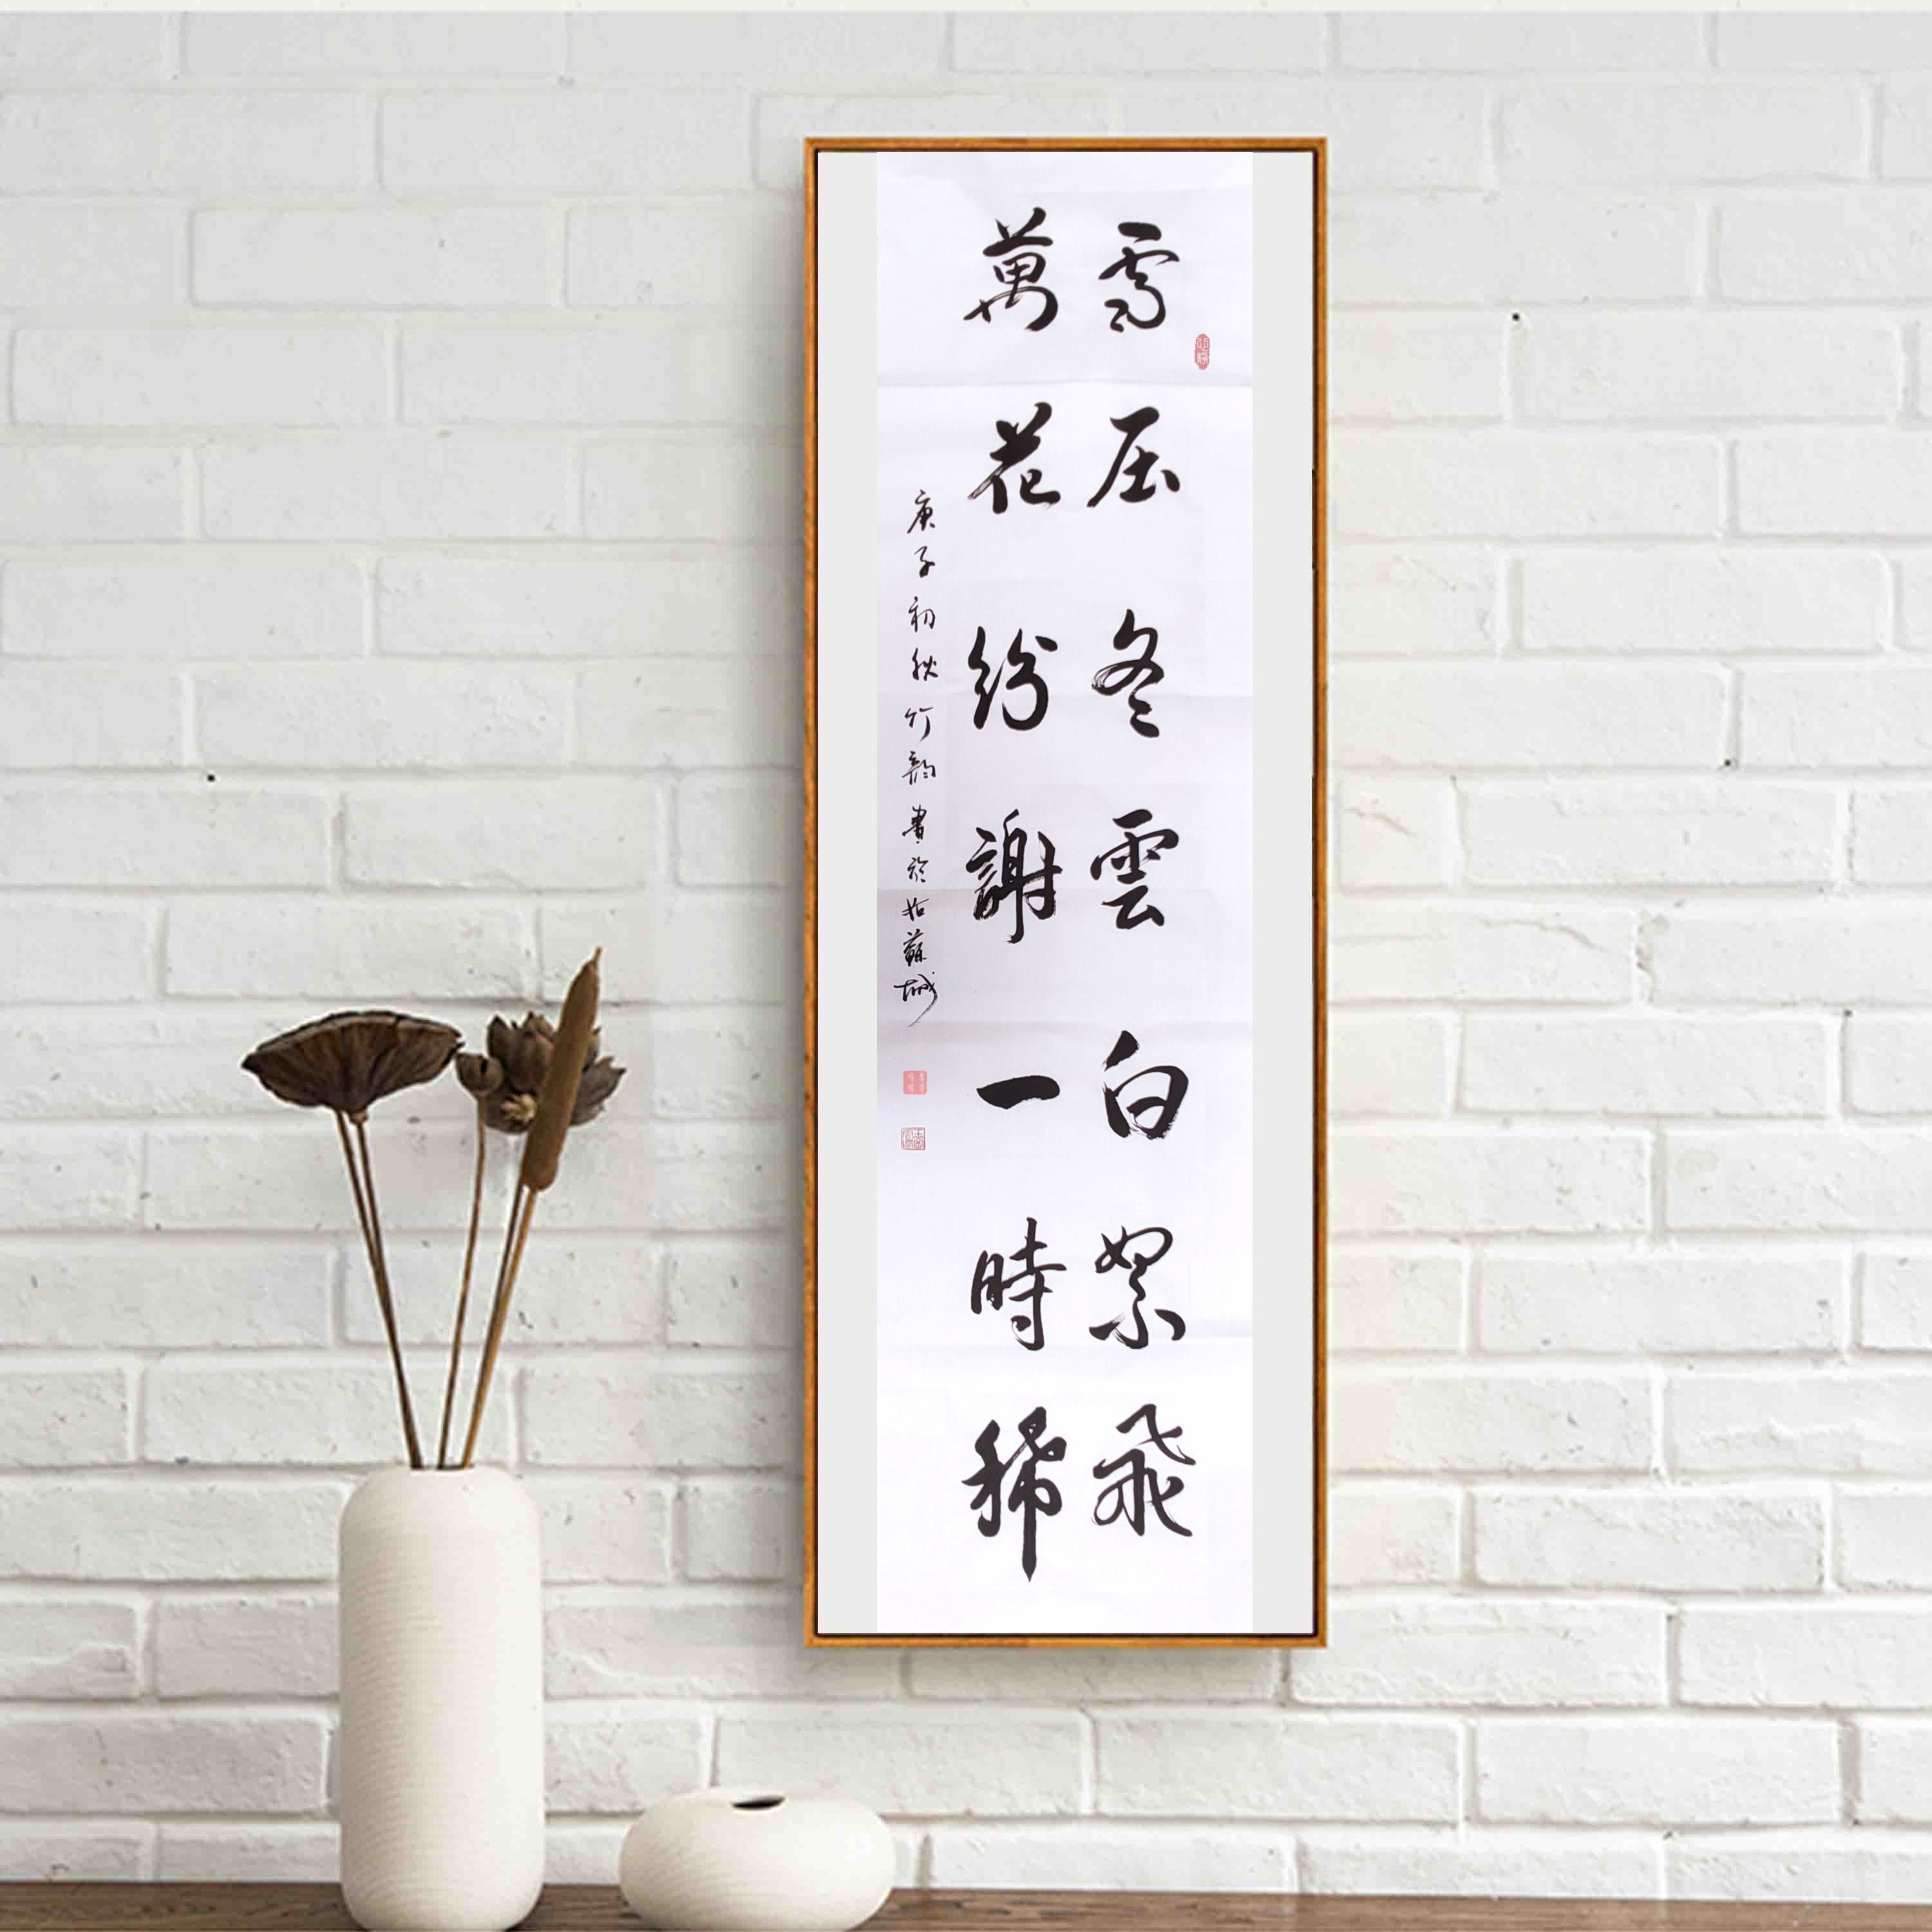 雪压冬雲白絮飛
萬花纷謝一時稀
庚子初秋竹韵書於姑蘇城